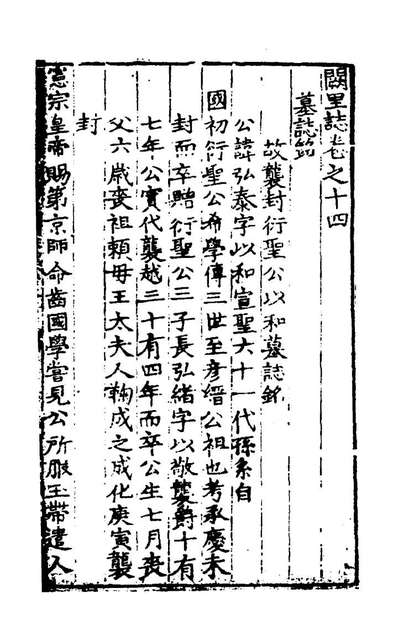 闕里誌卷之十四
墓誌銘
故襲封衍聖公以和墓誌銘
公諱弘泰字以和宣聖六十一代孫系自
國初衍聖公希學傳三世至彥縉公祖也考承慶未
封而卒贈衍聖公三子長弘緒字以敬襲爵十有
七年公實代襲越三十有四年而卒公生七月喪
父六歲喪祖賴母王太夫人鞠成之成化庚寅襲
封
憲宗皇帝賜第京師命齒國學嘗見公所服玉帶遣人